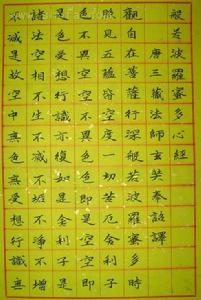 般若波羅蜜多心經
唐三藏法師玄奘奉詔譯
觀自在菩薩行深般若波羅蜜多時
照見五蘊皆空度一切苦厄舍利子
色不異空空不異色色即是空空即
是色受想行識亦復如是舍利子是
諸法空相不生不滅不垢不淨不增
不減是故空中無色無受想行識無